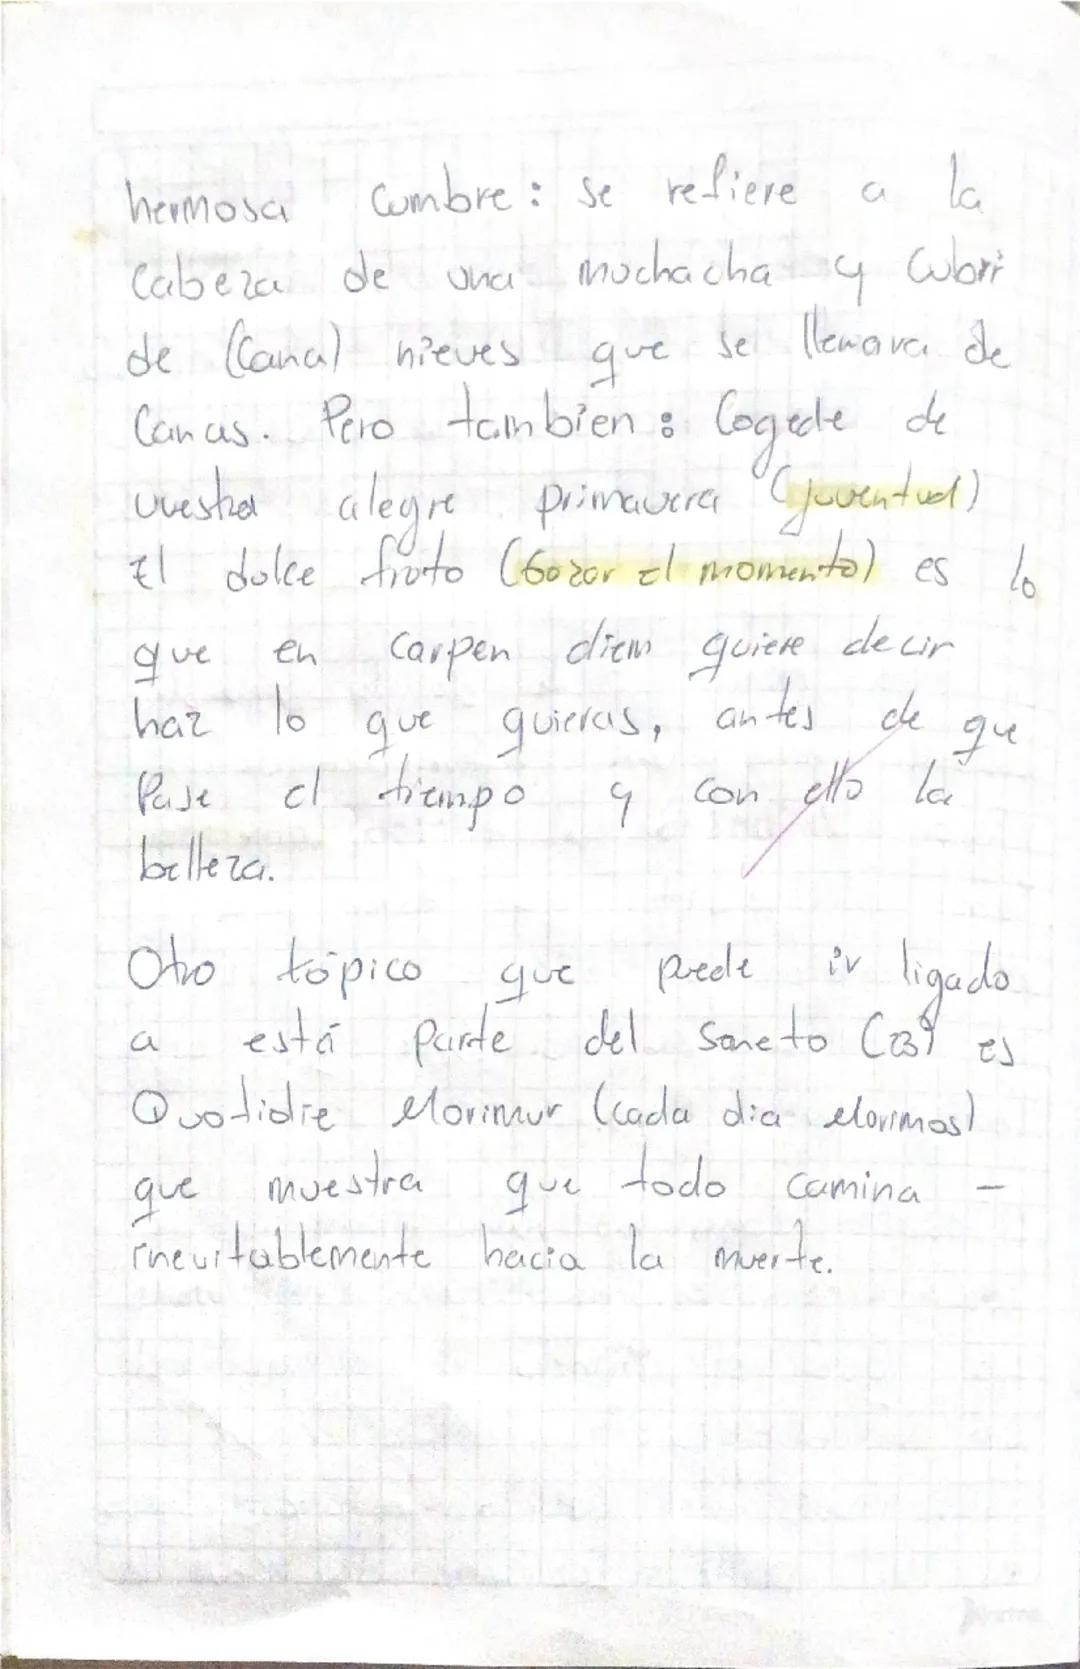 hermosa cumbre: se refiere a la
Cabeza de una muchacha y Cubrir
de (Cana) nieves que se llenara de
Canas. Pero tambien: Cogede de
vuestra alegre primavera (juventud)
El dulce fruto (Gozar el momento) es lo
que en Carpen diem quiere decir
haz lo que quieras, antes de que
Pase el tiempo y con ello la
belleza.
Otro tópico que puede ir ligado
a está parte del Soneto (23) es
Quotidie Morimur (cada dia Morimos)
que muestra que todo camina -
inevitablemente hacia la muerte.